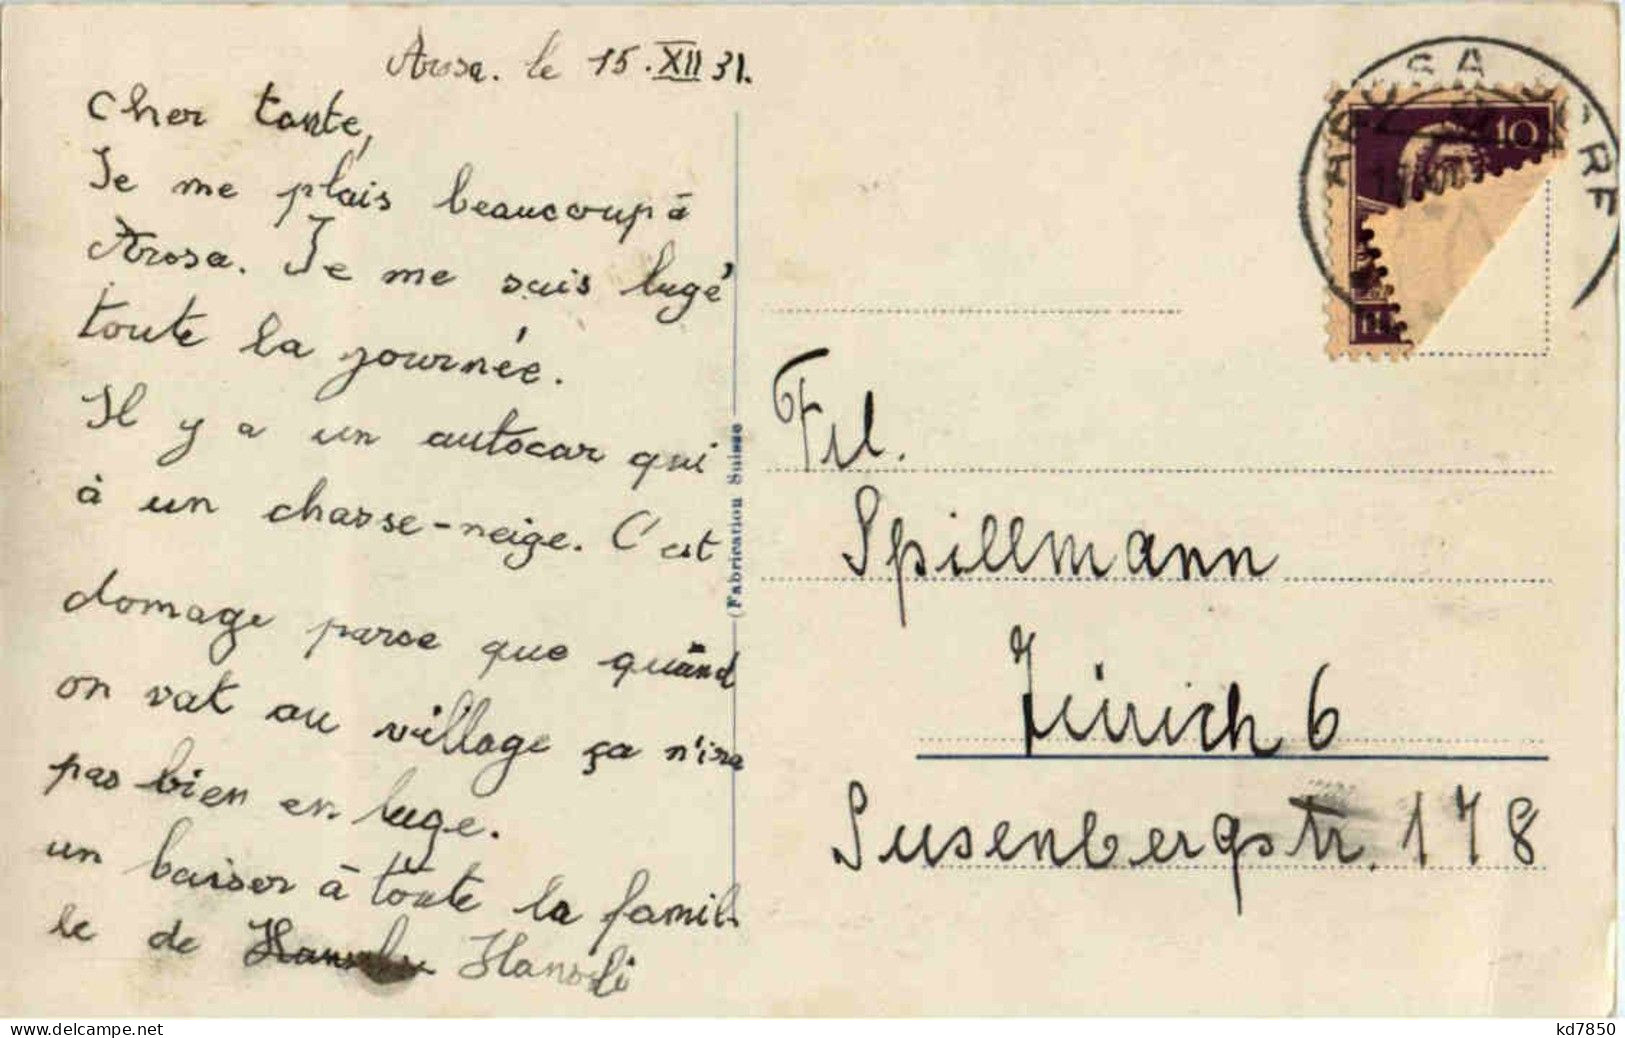 Arosa. le 15. XII 31.
Cher tante,
Je me plais beaucoup à
Arosa. Je me suis lugé
toute la journée.
Il y a un autocar qui
à un chasse-neige. C'est
domage parce que quand
on vat au village ça n'ira
pas bien en luge.
un baiser à toute la famil-
le de Hansli
(Fabrication Suisse)
AROSA DORF
10
Frl.
Spillmann
Zürich 6
Susenbergstr. 178
kd7850